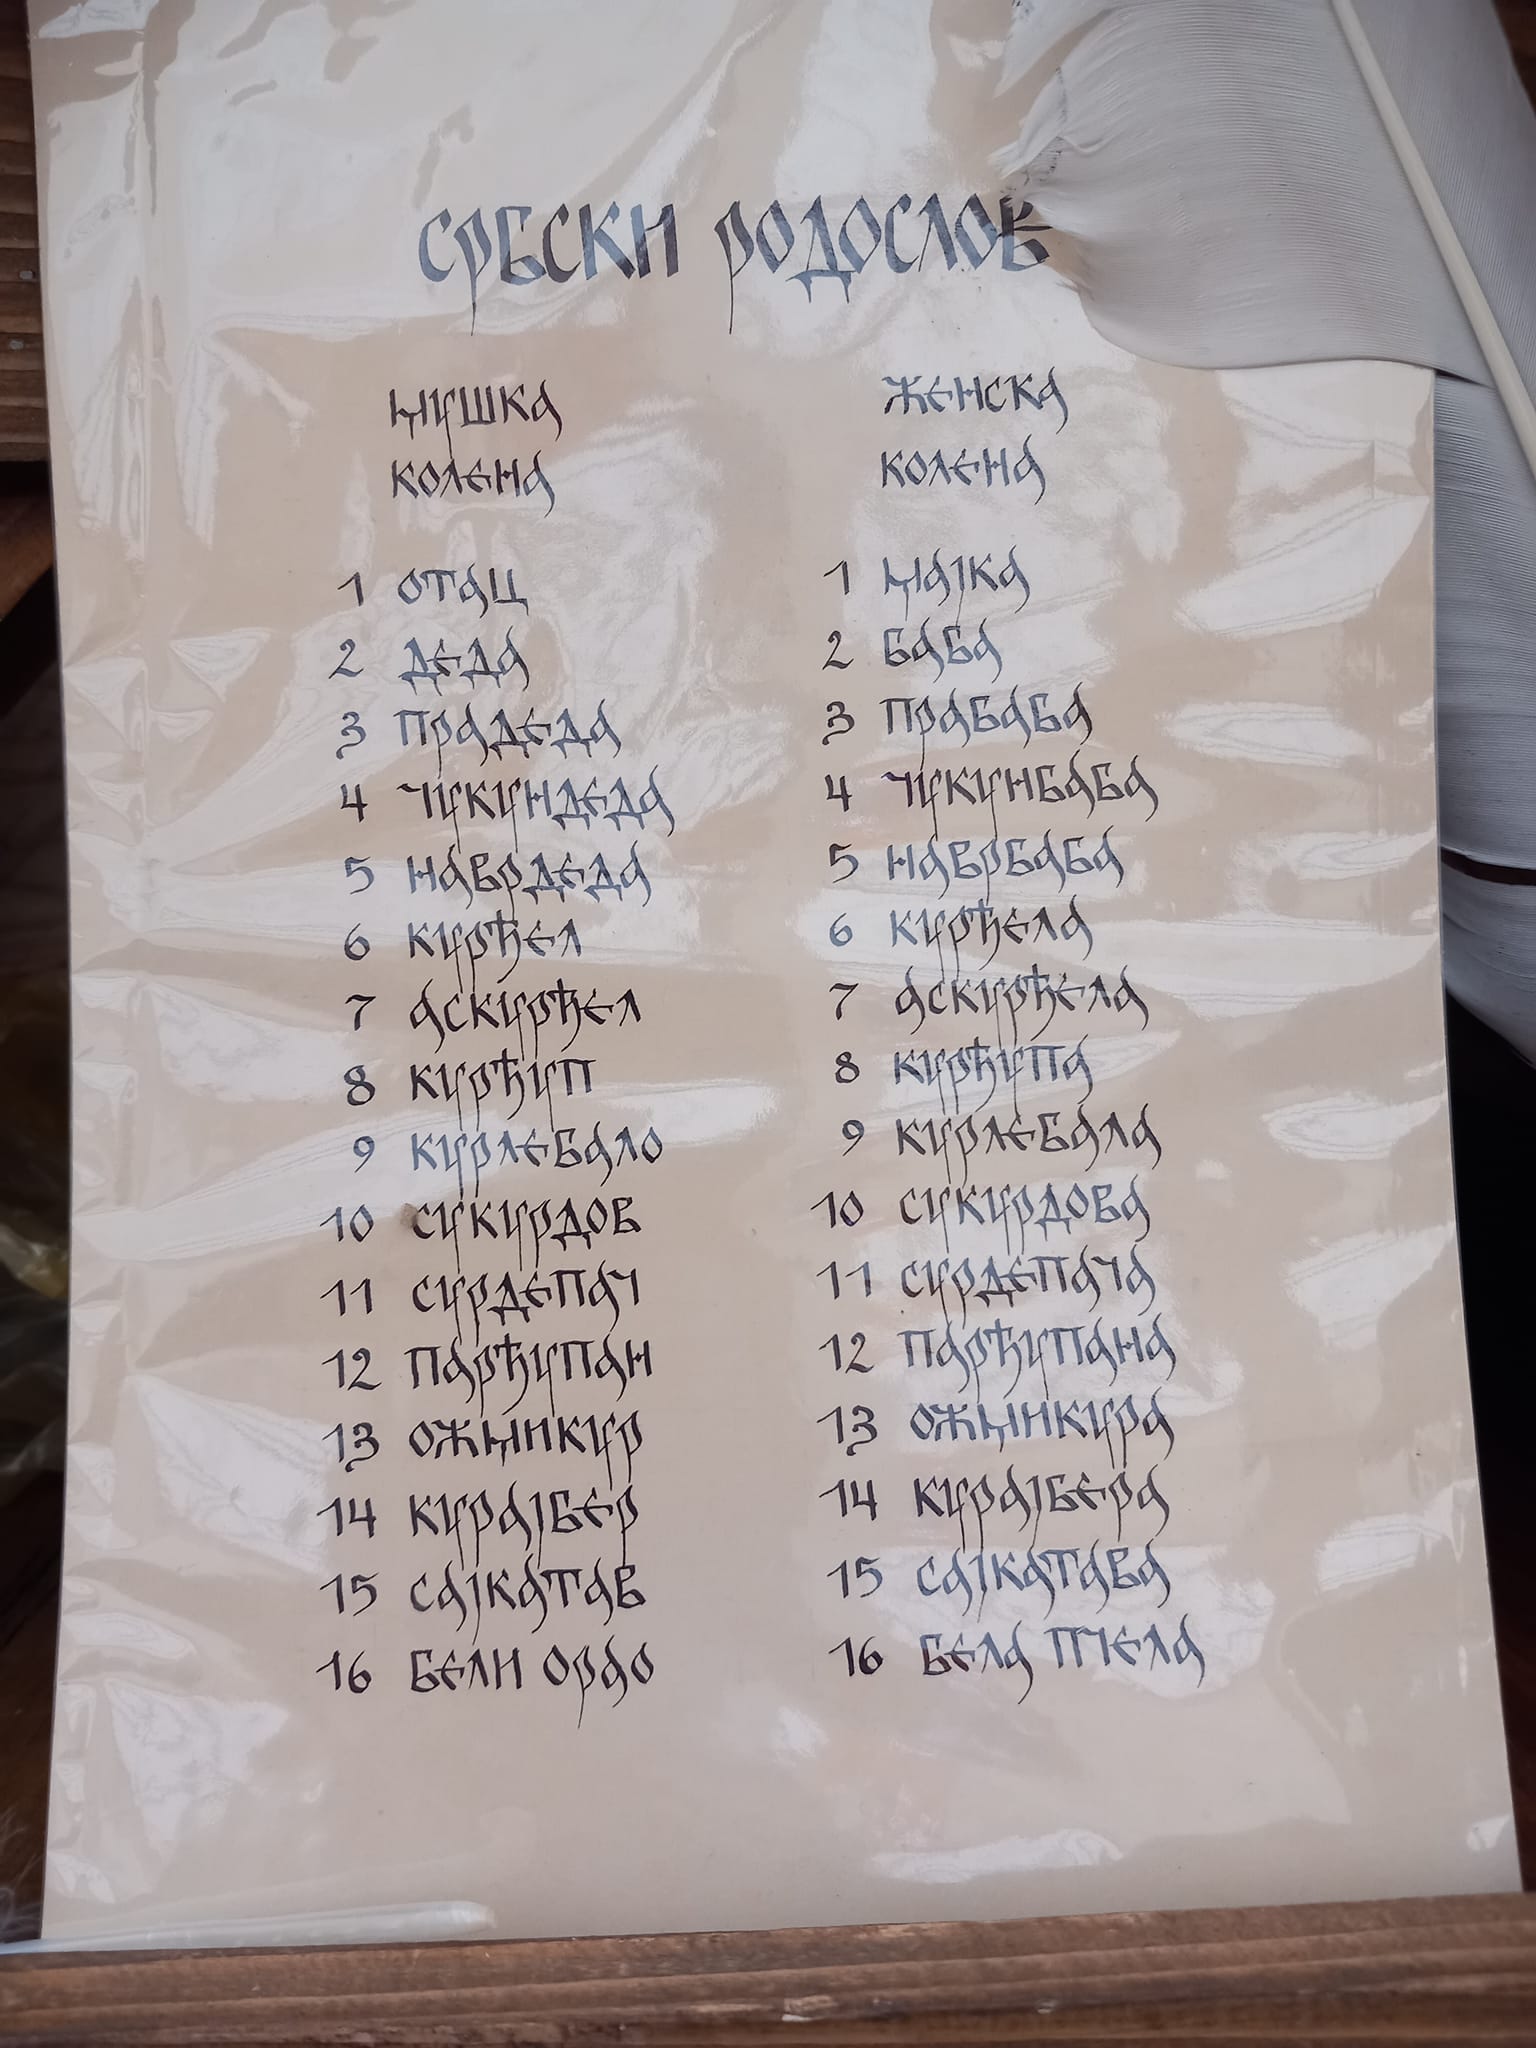 СРБСКИ РОДОСЛОВ
МУШКА
КОЛЕНА
1 ОТАЦ
2 ДЕДА
3 ПРАДЕДА
4 ЧУКУНДЕДА
5 НАВРДЕДА
6 КУРЂЕЛ
7 АСКУРЂЕЛ
8 КУРЂУП
9 КУРЛЕБАЛО
10 СУКУРДОВ
11 СУРДЕПАЧ
12 ПАРЂУПАН
13 ОЖМИКУР
14 КУРАЈБЕР
15 САЈКАТАВ
16 БЕЛИ ОРАО
ЖЕНСКА
КОЛЕНА
1 МАЈКА
2 БАБА
3 ПРАБАБА
4 ЧУКУНБАБА
5 НАВРБАБА
6 КУРЂЕЛА
7 АСКУРЂЕЛА
8 КУРЂУПА
9 КУРЛЕБАЛА
10 СУКУРДОВА
11 СУРДЕПАЧА
12 ПАРЂУПАНА
13 ОЖМИКУРА
14 КУРАЈБЕРА
15 САЈКАТАВА
16 БЕЛА ПЧЕЛА